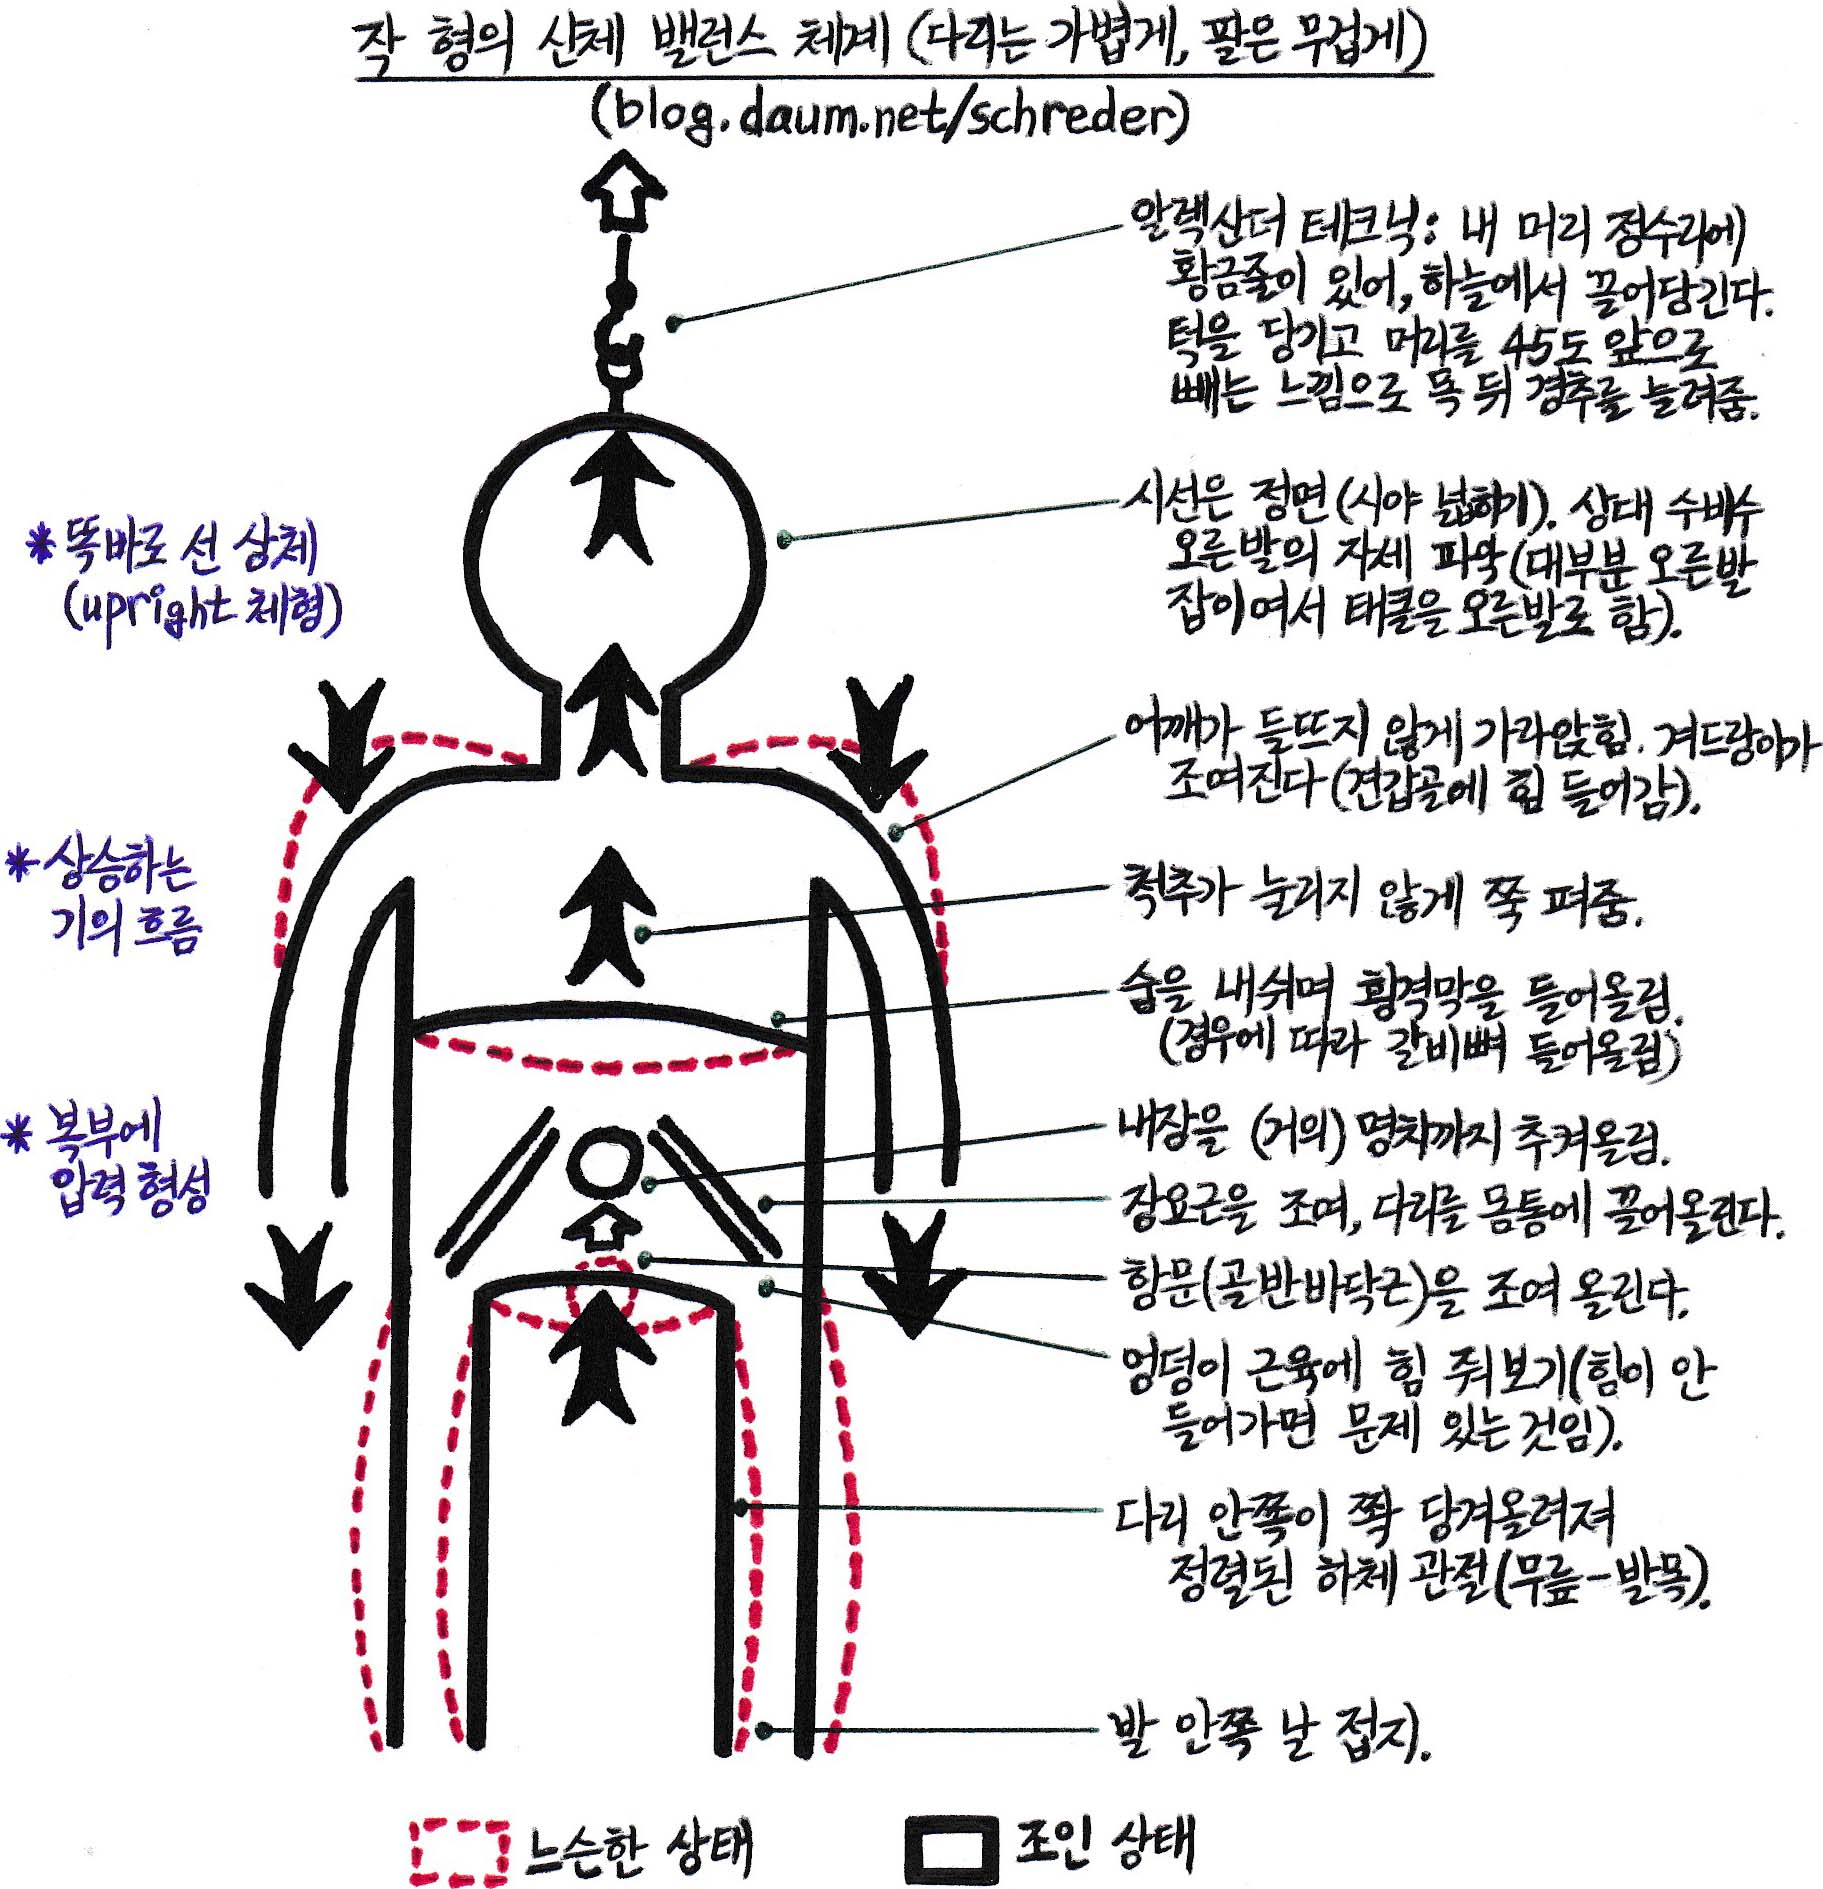 작 형의 신체 밸런스 체계 (다리는 가볍게, 팔은 무겁게)
(blog.daum.net/schreder)
알렉산더 테크닉: 내 머리 정수리에
황금줄이 있어, 하늘에서 끌어당긴다.
턱을 당기고 머리를 45도 앞으로
빼는 느낌으로 목 뒤 경추를 늘려줌.
시선은 정면(시야 넓히기). 상대 수비수
오른발의 자세 파악(대부분 오른발
잡이여서 태클을 오른발로 함).
* 똑바로 선 상체
(upright 체형)
어깨가 들뜨지 않게 가라앉힘. 겨드랑이가
조여진다(견갑골에 힘 들어감).
* 상승하는
기의 흐름
척추가 눌리지 않게 쭉 펴줌.
숨을 내쉬며 횡격막을 들어올림.
(경우에 따라 갈비뼈 들어올림)
* 복부에
압력 형성
내장을 (거의) 명치까지 추켜올림.
장요근을 조여, 다리를 몸통에 끌어올린다.
항문(골반바닥근)을 조여 올린다.
엉덩이 근육에 힘 줘보기(힘이 안
들어가면 문제 있는것임).
다리 안쪽이 쫙 당겨올려져
정렬된 하체 관절(무릎-발목).
발 안쪽 날 접지.
느슨한 상태
조인 상태